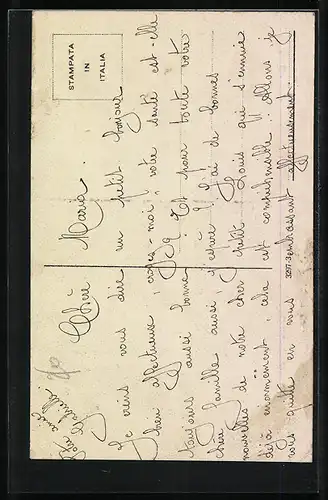 STAMPATA
IN
ITALIA
Chère Maria.
Je viens vous dire un petit bonjour
bien affectueux, croyez-moi, votre santé est-elle
toujours aussi bonne, Et pour toute votre
chère famille aussi, j'espère. J'ai de bonnes
nouvelles de notre cher petit Louis qui s'ennuie
déjà énormément, cela est compréhensible. Allons je
vous quitte en vous embrassant affectueusement.
Votre amie
3277-3